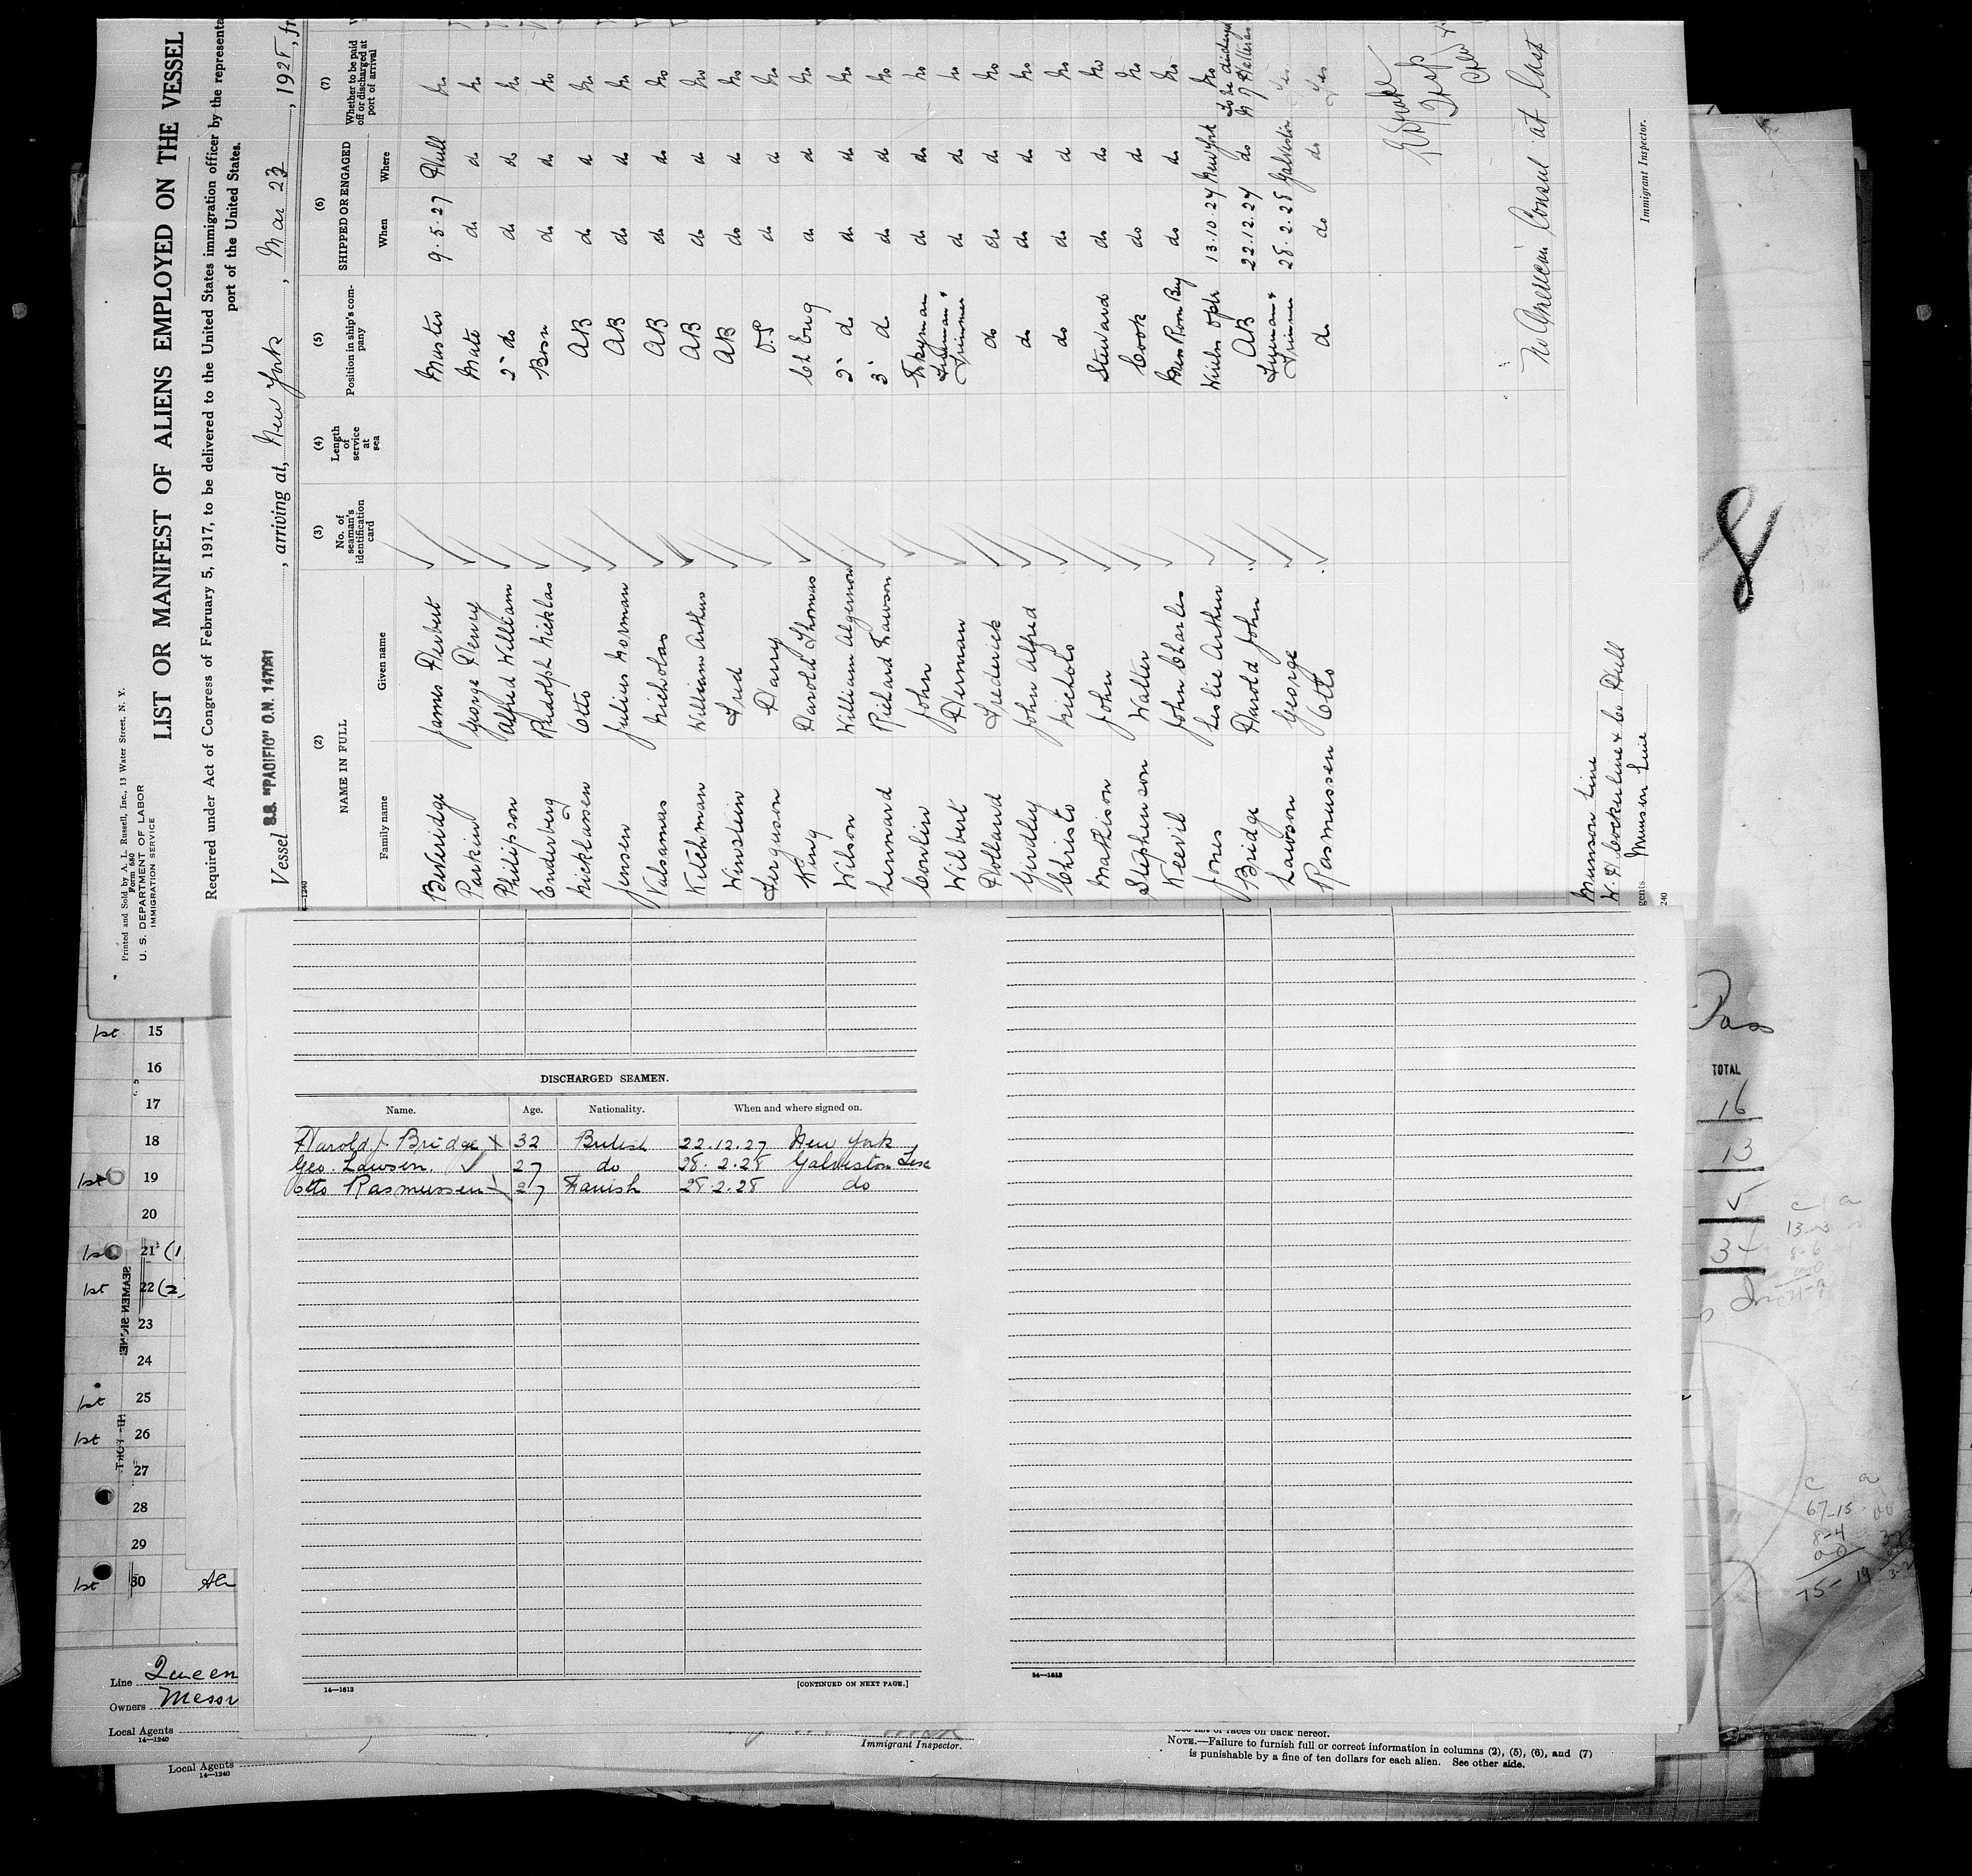 Printed and Sold by A. L. Russell, Inc., 13 Water Street, N. Y.
Form 680
U. S. DEPARTMENT OF LABOR
IMMIGRATION SERVICE
LIST OR MANIFEST OF ALIENS EMPLOYED ON THE VESSEL
Required under Act of Congress of February 5, 1917, to be delivered to the United States immigration officer by the representa
port of the United States.
Vessel S.S. "PACIFIC" O.N. 147121, arriving at, New York, Mar 23, 1928, fr
(2) (3) (4) (5) (6) (7)
NAME IN FULL No. of seaman's identification card Length of service at sea Position in ship's company SHIPPED OR ENGAGED Whether to be paid off or discharged at port of arrival
Family name Given name When Where
Beveridge James Herbert Master 9.5.27 Hull No
Parkin George Henry Mate do do No
Philipson Alfred William 2nd do do do No
Enderberg Rudolph Nicklas Bosn do do No
Nicklassen Otto AB do do No
Jensen Julius Norman AB do do No
Valsamas Nicholas AB do do No
Kitchman William Arthur AB do do No
Winstein Fred AB do do No
Ferguson Harry O.S do do No
King Harold Thomas Ch Eng do do No
Wilson William Algernon 2nd do do do No
Lennard Richard Lawson 3rd do do do No
Conlin John Dkyman do do No
Wilbert Herman Fireman & Trimmer do do No
Holland Frederick do do do No
Girdley John Alfred do do do No
Christo Nichols do do do No
Mathison John Steward do do No
Stephenson Walter Cook do do No
Keevil John Charles Mess Room Boy do do No
Jones Leslie Arthur Wireless Optr 13.10.27 New York No
Bridge Harold John AB 22.12.27 do
Lawson George Fireman & Trimmer 28.2.28 Galveston Yes
Rasmussen Otto do do do Yes
No American Consul at last
Immigrant Inspector.
Munson Line
W. H. Cockerline & Co Hull
Munson Line
gents
DISCHARGED SEAMEN.
Name. Age. Nationality. When and where signed on.
Harold J. Bridge 32 British 22.12.27 New York
Geo. Lawson. 27 do 28.2.28 Galveston Tex
Otto Rasmussen 27 Danish 28.2.28 do
14—1613
[CONTINUED ON NEXT PAGE.]
14—1613
1st 15
16
17
18
1st 19
20
1st 21 (1
1st 22 (2)
23
24
1st 25
1st 26
27
28
29
1st 30
Line Queen
Owners Messr
Local Agents
14—1240
Local Agents
14—1240
Immigrant Inspector.
See list of races on back hereof.
NOTE.—Failure to furnish full or correct information in columns (2), (5), (6), and (7)
is punishable by a fine of ten dollars for each alien. See other side.
8
Pass
TOTAL
16
13
5
34
c a
67-15
8-4
00
75-19